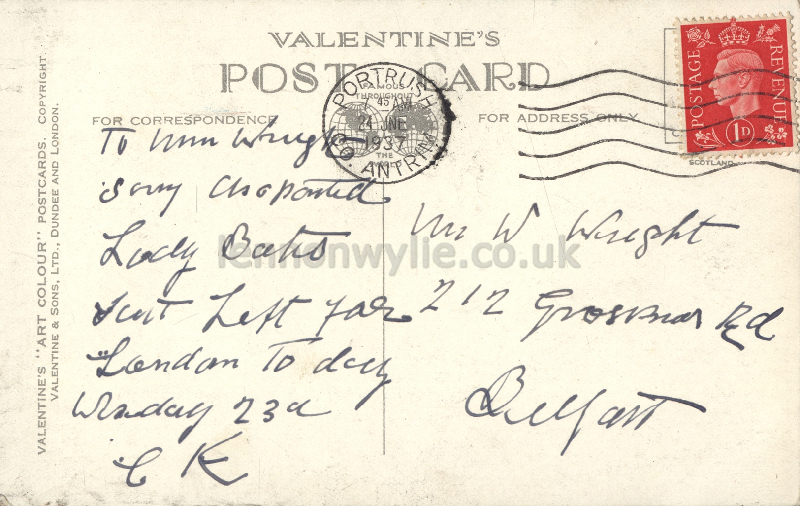 VALENTINE'S
POST CARD
FOR CORRESPONDENCE
FOR ADDRESS ONLY
VALENTINE'S "ART COLOUR" POSTCARDS. COPYRIGHT.
VALENTINE & SONS, LTD., DUNDEE AND LONDON.
PORTRUSH
FAMOUS
THROUGHOUT
45 AM
24 JNE
1937
THE
CO. ANTRIM
POSTAGE
REVENUE
1D
SCOTLAND
To Wright
sorry
Lady
Left for
London To day
23d
C K
Mr W Wright
212 Grosvenor Rd
Belfast
lennonwylie.co.uk